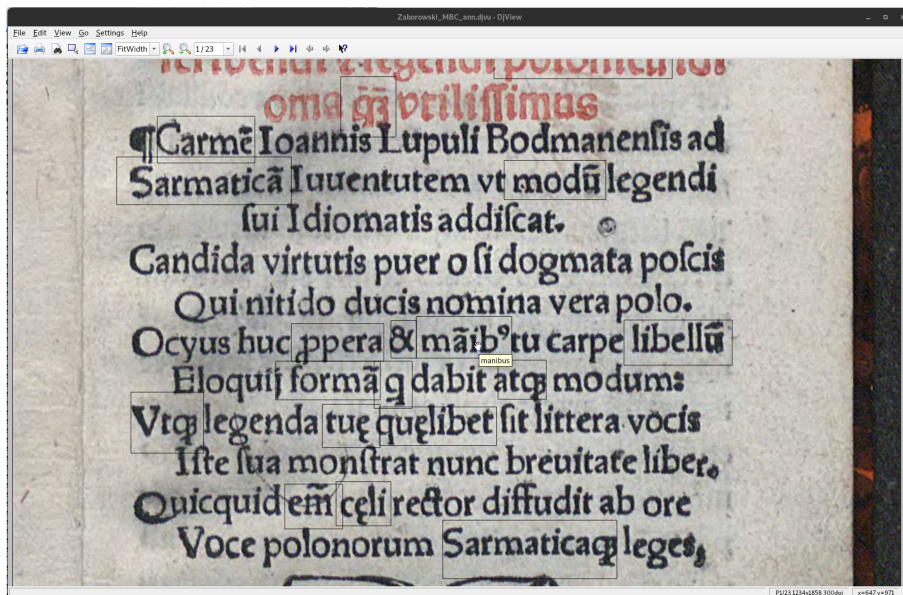 Zaborowski_MBC_ann.djvu - DjView
File Edit View Go Settings Help
FitWidth 1 / 23
scribendi et legendi polonicū idi
oma qȝ̄ vtilissimus
¶Carmē Ioannis Lupuli Bodmanenſis ad
Sarmaticā Iuuentutem vt modū legendi
ſui Idiomatis addiſcat.
Candida virtutis puer o ſi dogmata poſcis
Qui nitido ducis nomina vera polo.
Ocyus huc ꝓpera & māibꝰ tu carpe libellū
manibus
Eloquij formā q dabit atqꝫ modum:
Vtqꝫ legenda tuę quęlibet ſit littera vocis
Iſte ſua monſtrat nunc breuitate liber.
Quicquid em̄ cęli rector diffudit ab ore
Voce polonorum Sarmaticaqꝫ leges,
P1/23 1234x1858 300dpi x=647 y=971